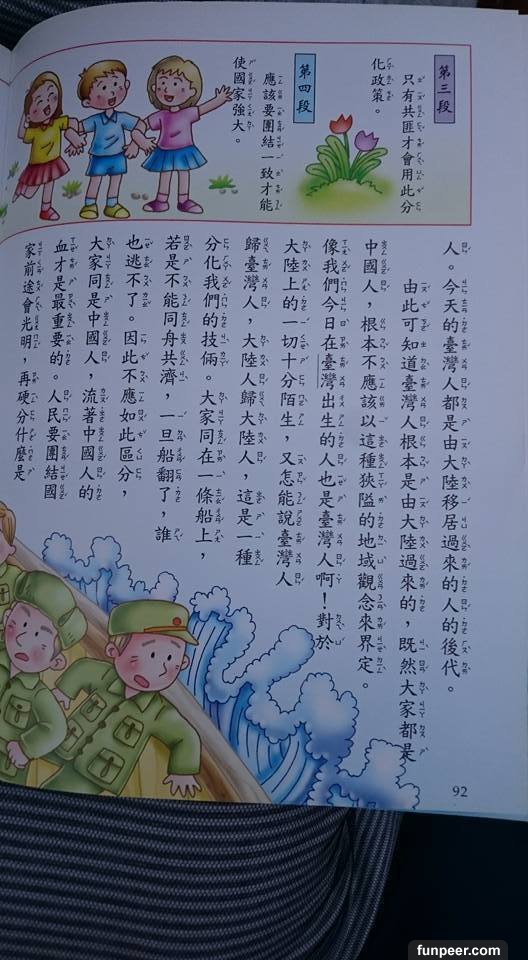 第三段
只有共匪才會用此分
化政策。
第四段
應該要團結一致才能
使國家強大。
人。今天的臺灣人都是由大陸移居過來的人的後代。
由此可知道臺灣人根本是由大陸過來的，既然大家都是
中國人，根本不應該以這種狹隘的地域觀念來界定。
像我們今日在臺灣出生的人也是臺灣人啊！對於
大陸上的一切十分陌生，又怎能說臺灣人
歸臺灣人，大陸人歸大陸人，這是一種
分化我們的技倆。大家同在一條船上，
若是不能同舟共濟，一旦船翻了，誰
也逃不了。因此不應如此區分，
大家同是中國人，流著中國人的
血才是最重要的。人民要團結國
家前途會光明，再硬分什麼是
92
funpeer.com